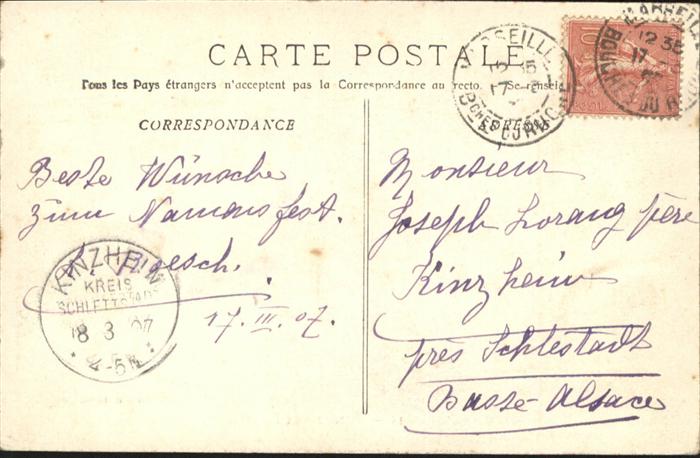 CARTE POSTALE
Tous les Pays étrangers n'acceptent pas la Correspondance au recto. Se renseig
CORRESPONDANCE
Beste Wünsche
zum Namensfest.
17. III. 07.
MARSEILLE
12 35
17
BOUCHES DU RHONE
MARSEILLE
12 35
17
BCHES DU RHONE
10
KINZHEIM
KREIS
SCHLETTSTADT
18 3 07
4-5N
Monsieur
Joseph Lorang père
Kinzheim
près Schlestadt
Basse-Alsace